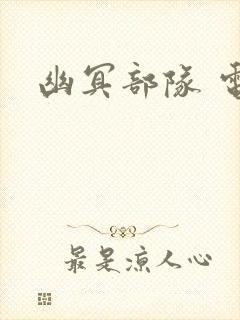 幽冥部隊
最是涼人心